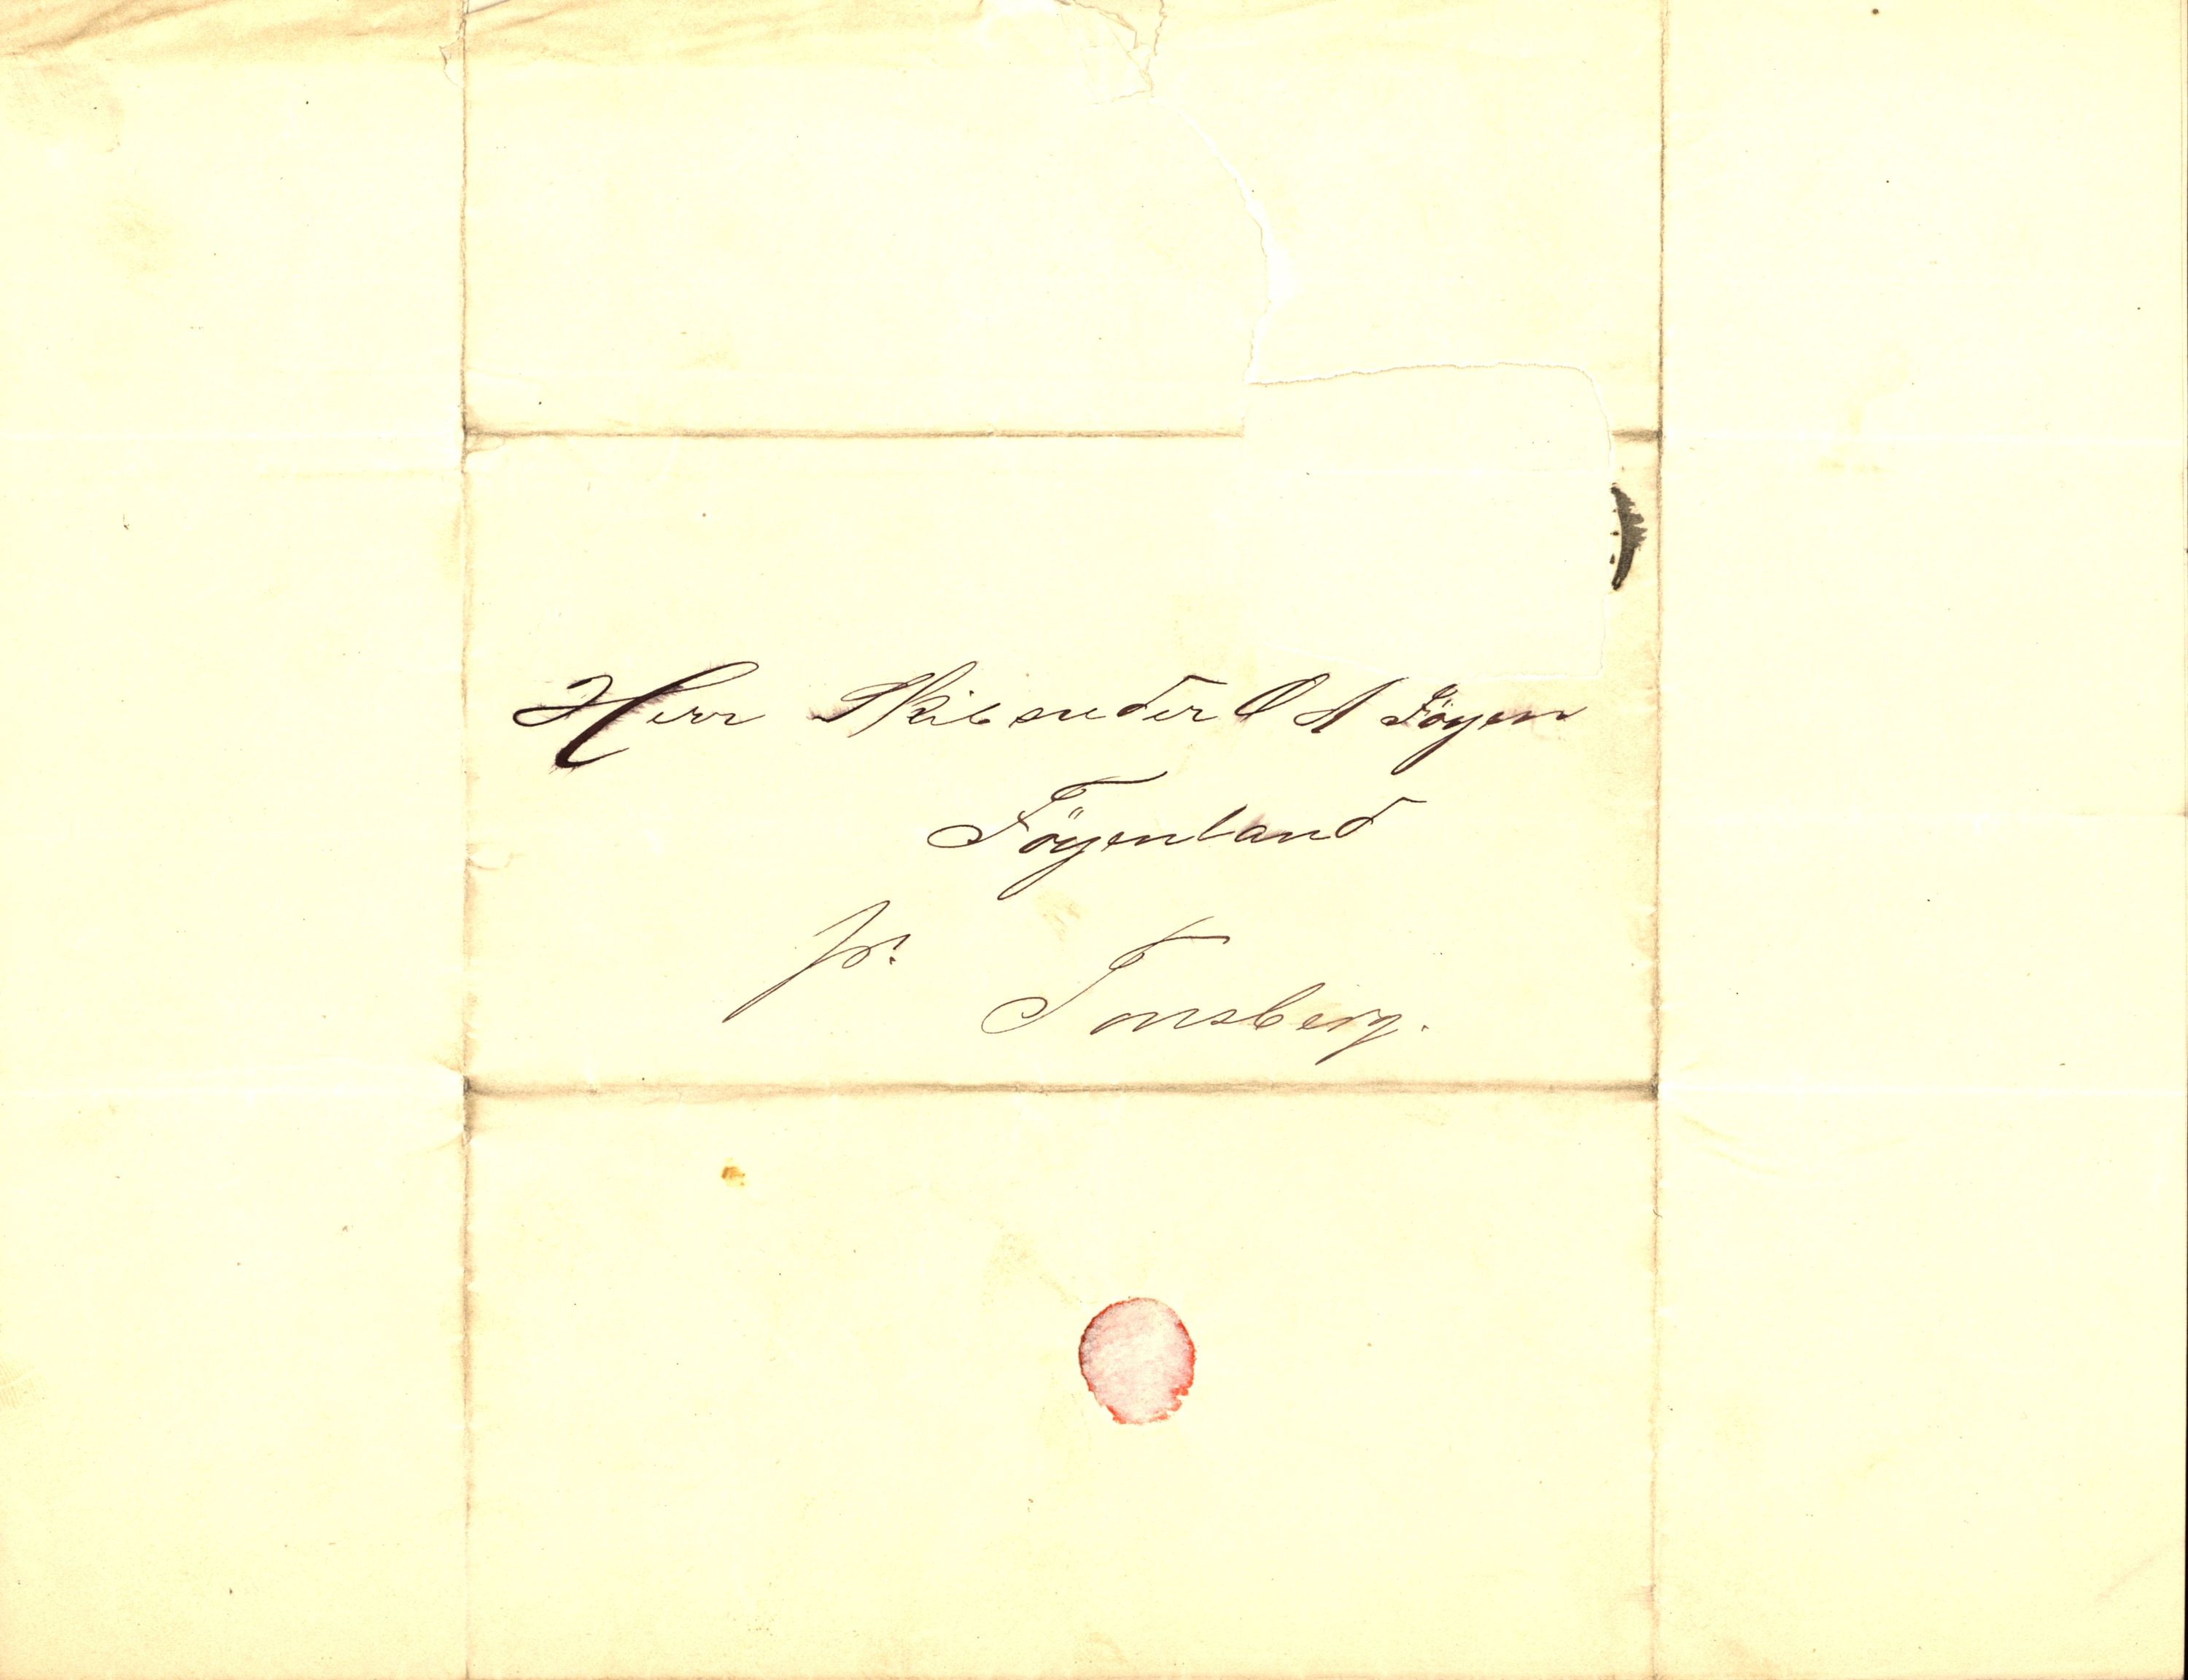 Herr Skibsreder O A Föyen
Föyenland
pr.
Tonsberg.